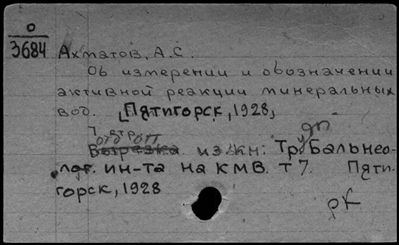 0
3684
Ахматов, А.С.
Об измерении и обозначении
активной реакции минеральных
вод. [Пятигорск, 1928,
7 стр.
Отд. отт.
Вырезка из кн: Тр. Бальнео-
лог. ин-та на КМВ. т 7. Пяти-
горск, 1928
рк